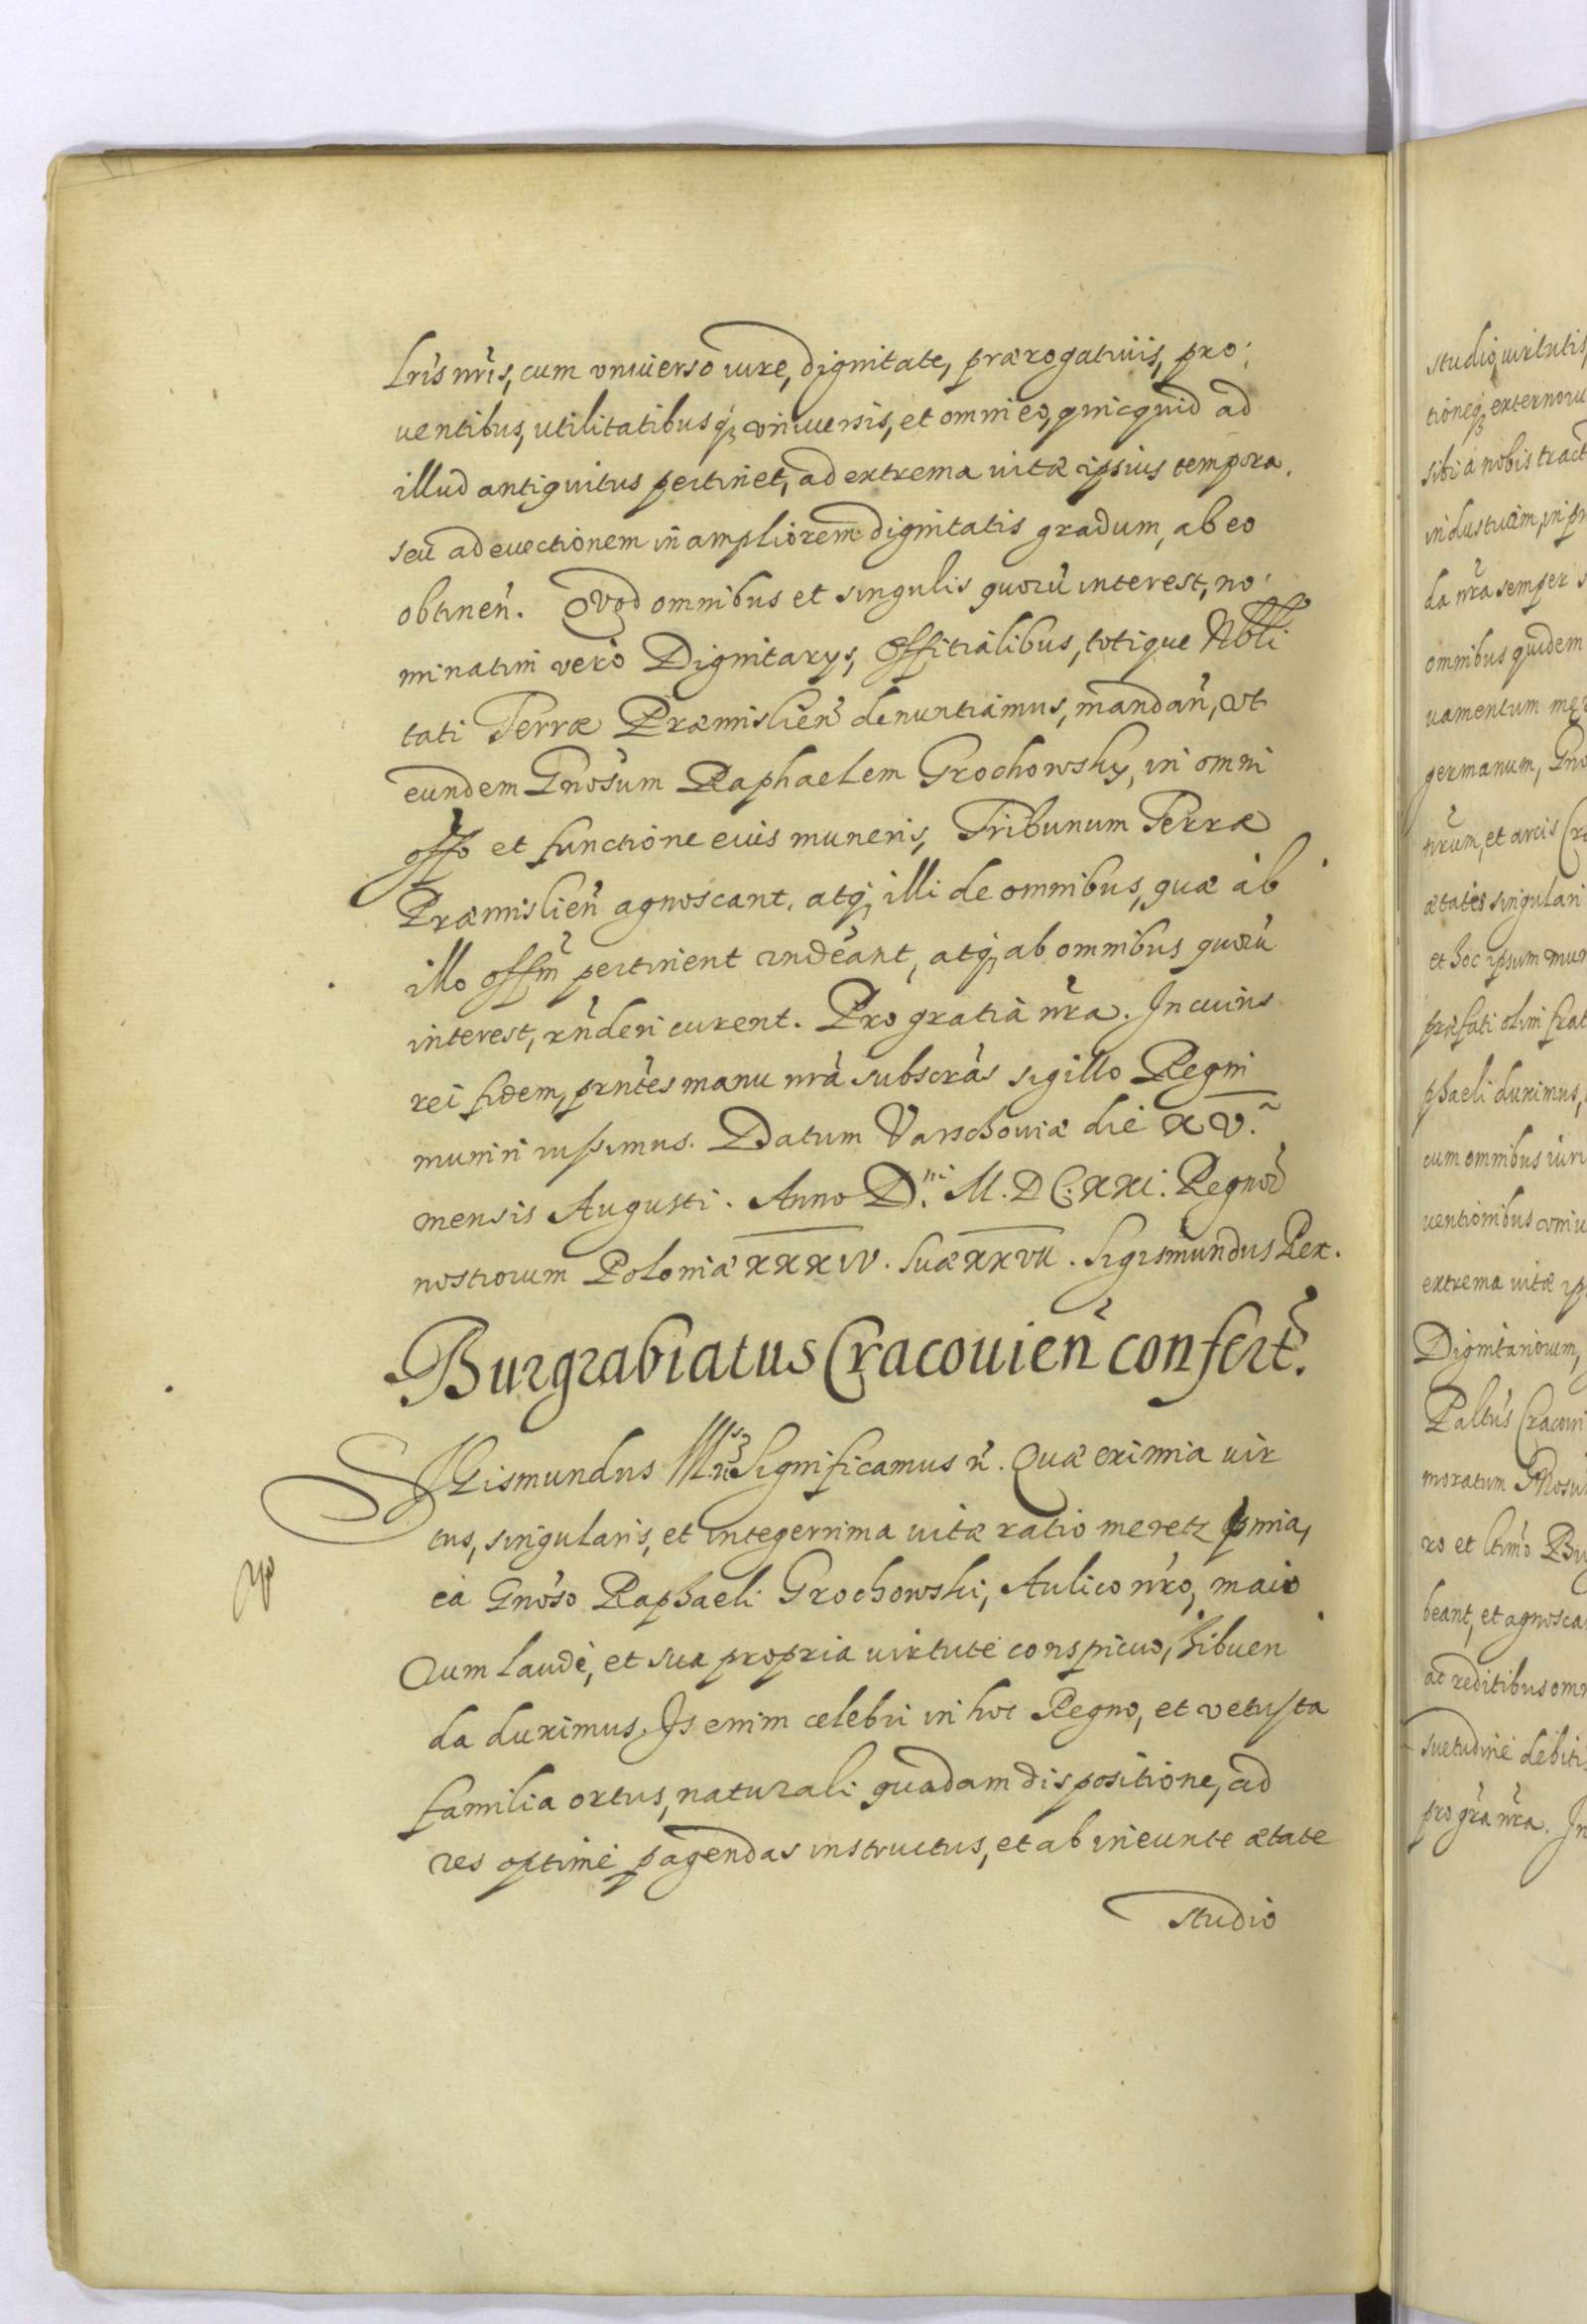 Lris nris, cum vniuerso iure, dignitate, prærogatiuis, pro:
uentibus, utilitatibusq; vniuersis, et omni eo, quicquid ad
illud antiquitus pertinet, ad extrema uitæ ipsius tempora.
seu ad euectionem in ampliorem dignitatis gradum, ab eo
obtinen. Quod omnibus et singulis quorũ interest, no:
minatim vero Dignitarys, Offitialibus, totique Nbli
tati Terræ Præmislien denuntiamus, mandan, vt
eundem Gnosum Raphaelem Grochowsky, in omni
offo et functione euis muneris, Tribunum Terræ
Præmislien agnoscant, atq; illi de omnibus, quæ ab
illo offm pertinent rndeant, atq; ab omnibus quorũ
interest, rnderi curent. Pro gratia nra. In cuius
rei fidem, prntes manu nra subscras sigillo Regni
muniri iussimus. Datum Varschouiæ die XV.
mensis Augusti. Anno D.ni M.DC.XXI. Regnor
nostrorum Poloniæ XXXIV. Suæ XXVII. Sigismundus Rex.
Burgrabiatus Cracouien confert.
SIGismundus Significamus n. Quæ eximia uir
tus, singularis, et integerrima uitæ ratio meretz pmia,
ea Gnoso Raphaeli Grochowski, Aulico nro, maio
Qum laude, et sua propria uirtute conspicuo, tribuen
da duximus. Is enim celebri in hoc Regno, et vetusta
familia ortus, naturali quadam dispositione, ad
res optime pagendas instructus, et ab ineunte ætate
studio
studio, uirtutis,
tioneq; externoru
sibi a nobis tract
industriam, in pr
da nra semper s
omnibus quidem
uamentum me
germanum, Gno
nrum, et arcis Cra
ætatis singulari
et hoc ipsum mun
præfati olim frat
phaeli duximus,
cum omnibus iuri
uentionibus vniu
extrema uitæ ip
Dignitariorum,
Paltus Cracoui
moratum Gnosu
ro et ltimo Bu
beant, et agnosca
ac reditibus omn
suetudine debiti
pro gra nra. In